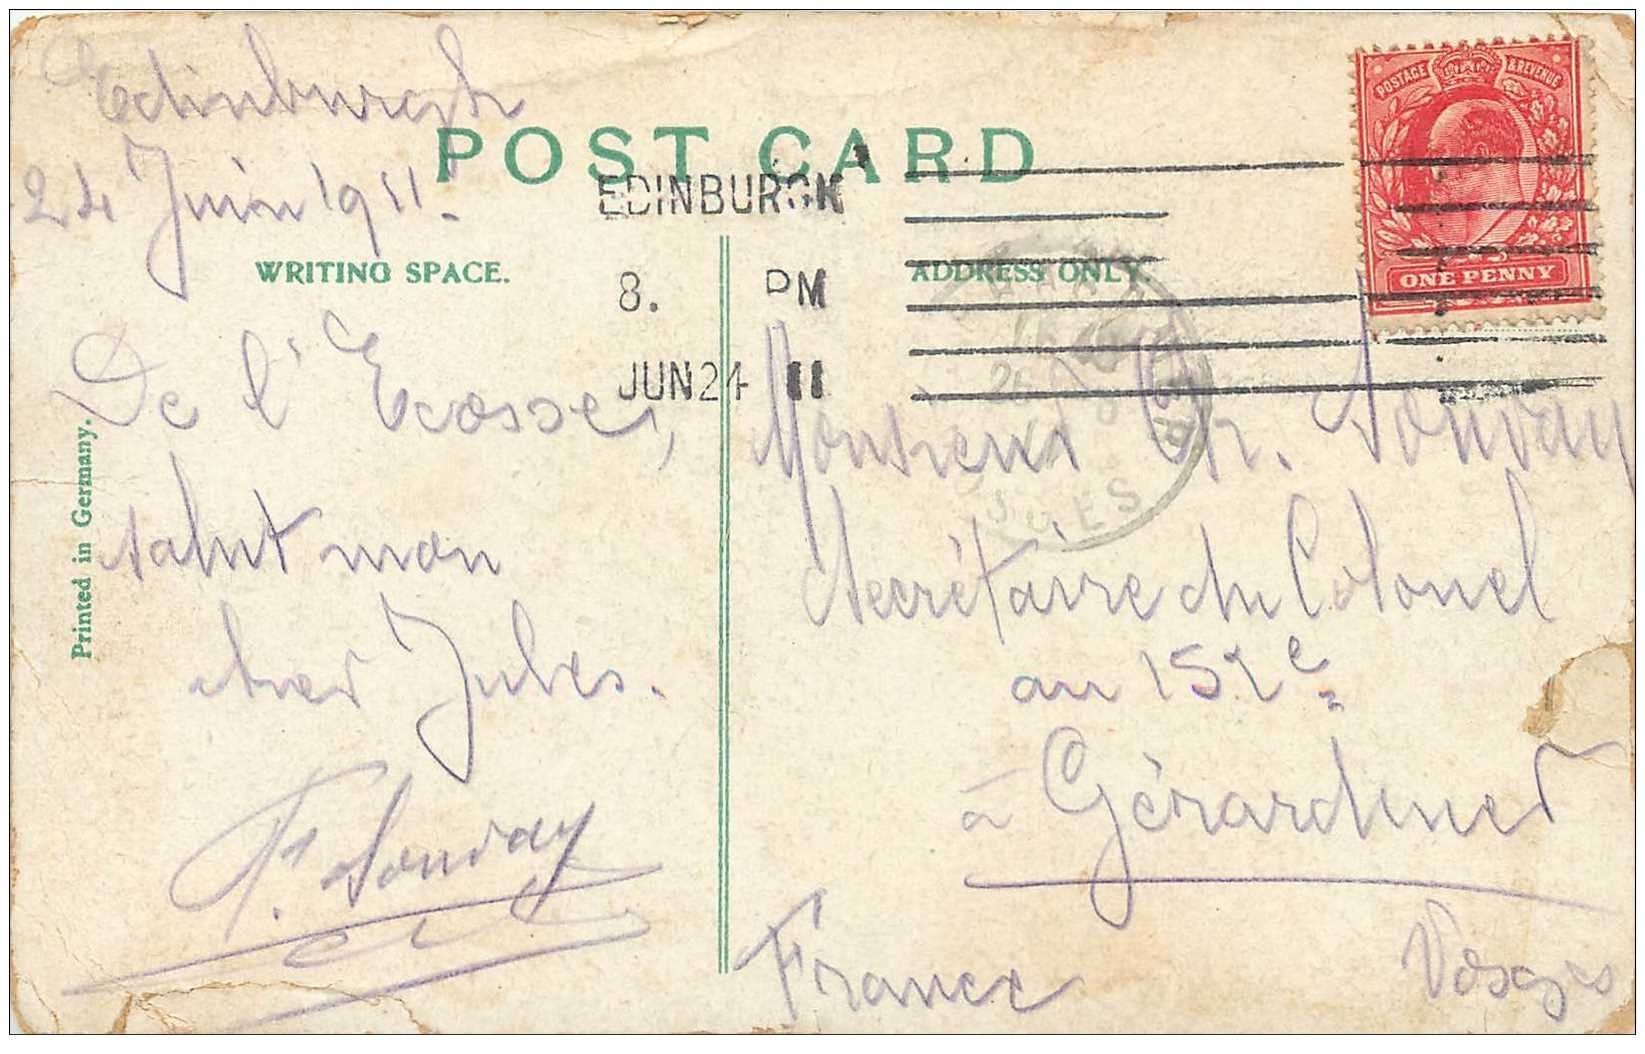 Edinburgh
24 Juin 1911.
POST CARD
EDINBURGH
8. PM
JUN 24 11
POSTAGE & REVENUE
ONE PENNY
WRITING SPACE.
ADDRESS ONLY.
De l'Ecosse,
salut mon
cher Jules.
F. Souvay
Printed in Germany.
Monsieur Ch. Souvay
Secrétaire du Colonel
au 152e
à Gérardmer
Vosges
France